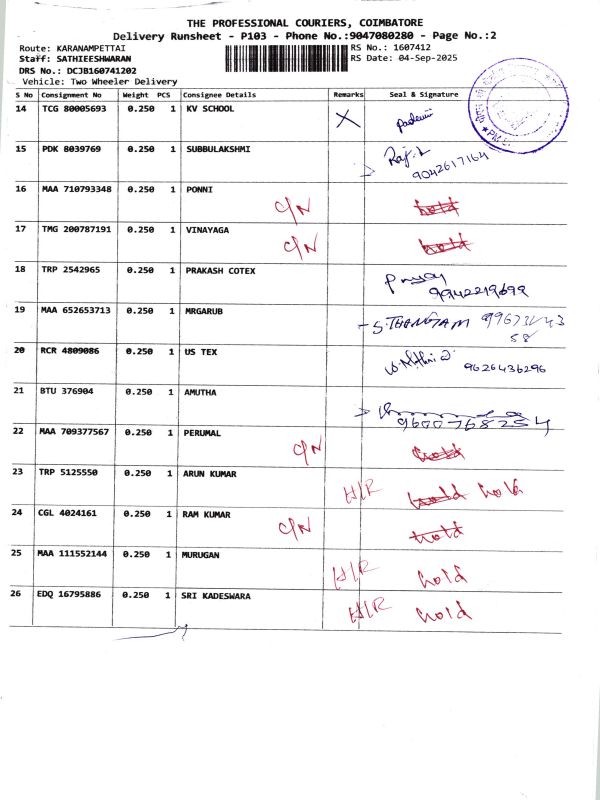 THE PROFESSIONAL COURIERS, COIMBATORE
Delivery Runsheet - P103 - Phone No.:9047080280 - Page No.:2
Route: KARANAMPETTAI RS No.: 1607412
Staff: SATHIEESHWARAN RS Date: 04-Sep-2025
DRS No.: DCJB160741202
Vehicle: Two Wheeler Delivery
S No Consignment No Weight PCS Consignee Details Remarks Seal & Signature
14 TCG 80005693 0.250 1 KV SCHOOL X
15 PDK 8039769 0.250 1 SUBBULAKSHMI Raj. L
9042617164
16 MAA 710793348 0.250 1 PONNI C/N hold
17 TMG 200787191 0.250 1 VINAYAGA C/N hold
18 TRP 2542965 0.250 1 PRAKASH COTEX
9942219699
19 MAA 652653713 0.250 1 MRGARUB - S.THANGAM
58
20 RCR 4809086 0.250 1 US TEX 9626436296
21 BTU 376904 0.250 1 AMUTHA
9600768254
22 MAA 709377567 0.250 1 PERUMAL C/N hold
23 TRP 5125550 0.250 1 ARUN KUMAR H/R hold hold
24 CGL 4024161 0.250 1 RAM KUMAR C/N hold
25 MAA 111552144 0.250 1 MURUGAN H/R hold
26 EDQ 16795886 0.250 1 SRI KADESWARA H/R hold